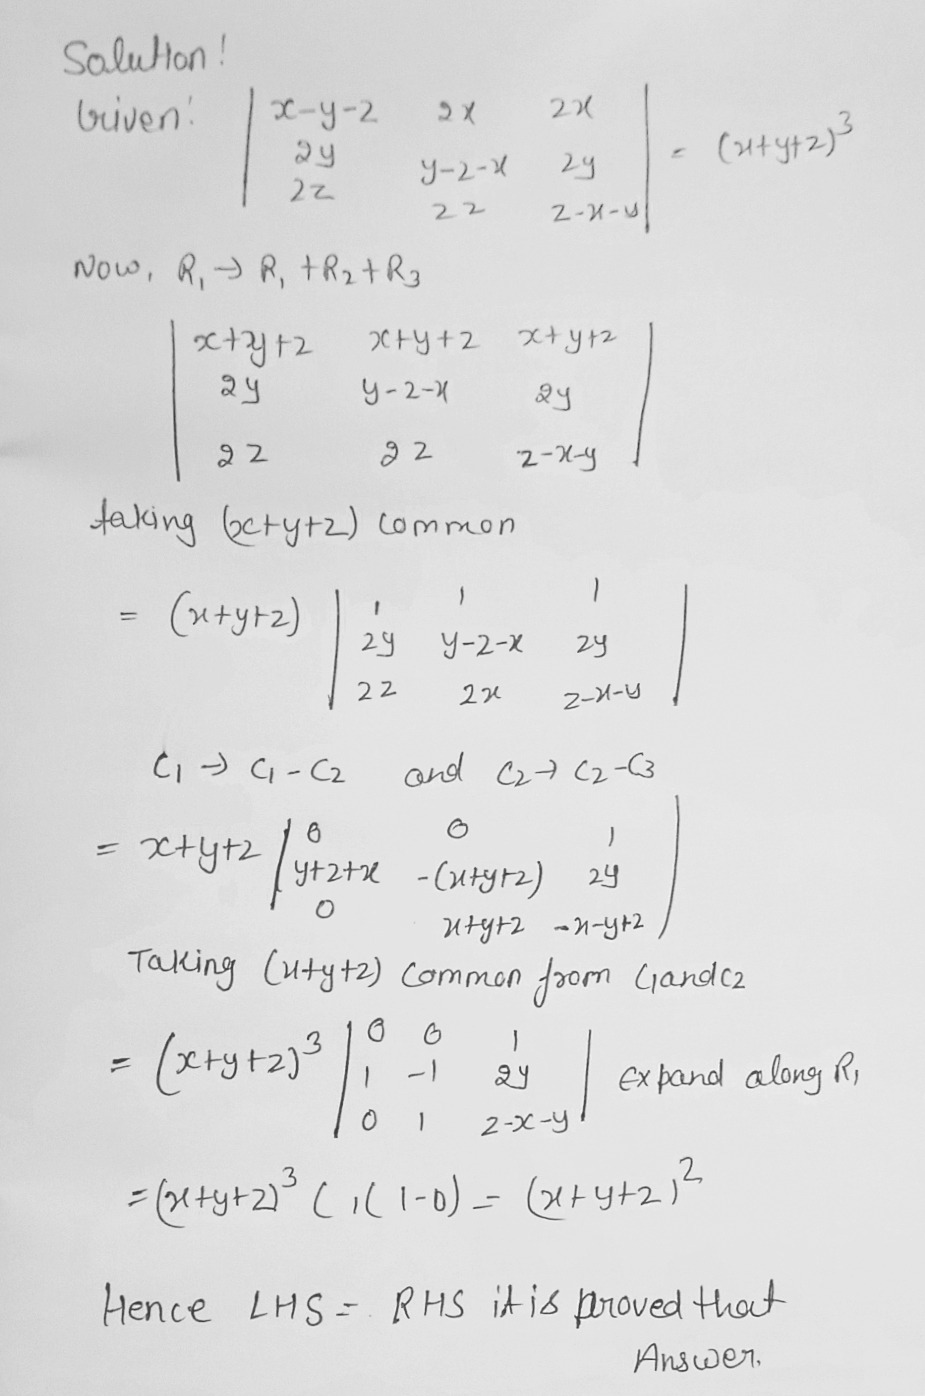 Solution!
Given: | x-y-z 2x 2x | = (x+y+z)³
| 2y y-z-x 2y |
| 2z 2z z-x-y |
Now, R₁ → R₁ + R₂ + R₃
| x+y+z x+y+z x+y+z |
| 2y y-z-x 2y |
| 2z 2z z-x-y |
taking (x+y+z) common
= (x+y+z) | 1 1 1 |
| 2y y-z-x 2y |
| 2z 2x z-x-y |
C₁ → C₁ - C₂ and C₂ → C₂ - C₃
= x+y+z | 0 0 1 |
| y+z+x -(x+y+z) 2y |
| 0 x+y+z -x-y+z |
Taking (x+y+z) common from C₁ and C₂
= (x+y+z)³ | 0 0 1 |
| 1 -1 2y | Expand along R₁
| 0 1 z-x-y |
= (x+y+z)³ ( 1( 1-0) = (x+y+z)²
Hence LHS = RHS it is proved that
Answer.